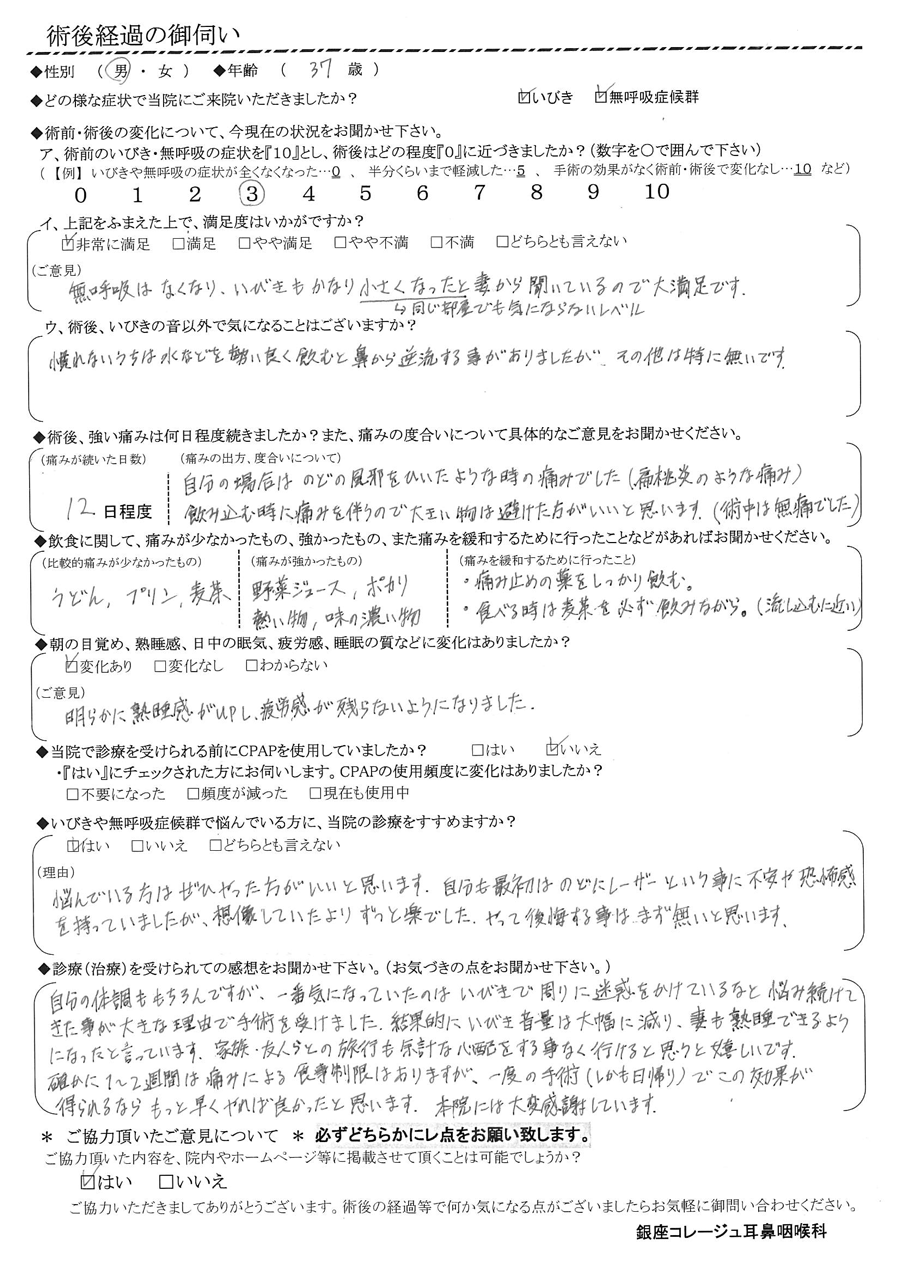 術後経過の御伺い
◆性別 （ 男 ・ 女 ） ◆年齢 （ 37 歳 ）
◆どの様な症状で当院にご来院いただきましたか？ ☑いびき ☑無呼吸症候群
◆術前・術後の変化について、今現在の状況をお聞かせ下さい。
ア、術前のいびき・無呼吸の症状を『10』とし、術後はどの程度『0』に近づきましたか？（数字を〇で囲んで下さい）
（ 【例】 いびきや無呼吸の症状が全くなくなった…0 、 半分くらいまで軽減した…5 、 手術の効果がなく術前・術後で変化なし…10 など）
0 1 2 3 4 5 6 7 8 9 10
イ、上記をふまえた上で、満足度はいかがですか？
☑非常に満足 □満足 □やや満足 □やや不満 □不満 □どちらとも言えない
（ご意見）
無呼吸はなくなり、いびきもかなり小さくなったと妻から聞いているので大満足です.
↳同じ部屋でも気にならないレベル
ウ、術後、いびきの音以外で気になることはございますか？
慣れないうちは水などを勢い良く飲むと鼻から逆流する事がありましたが、その他は特に無いです.
◆術後、強い痛みは何日程度続きましたか？また、痛みの度合いについて具体的なご意見をお聞かせください。
（痛みが続いた日数） （痛みの出方、度合いについて）
自分の場合はのどの風邪をひいたような時の痛みでした（扁桃炎のような痛み）
12 日程度 飲み込む時に痛みを伴うので大きい物は避けた方がいいと思います.（術中は無痛でした）
◆飲食に関して、痛みが少なかったもの、強かったもの、また痛みを緩和するために行ったことなどがあればお聞かせください。
（比較的痛みが少なかったもの） （痛みが強かったもの） （痛みを緩和するために行ったこと）
うどん, プリン, 麦茶 野菜ジュース, ポカリ ・痛み止めの薬をしっかり飲む。
熱い物, 味の濃い物 ・食べる時は麦茶を必ず飲みながら。（流し込むに近い）
◆朝の目覚め、熟睡感、日中の眠気、疲労感、睡眠の質などに変化はありましたか？
☑変化あり □変化なし □わからない
（ご意見）
明らかに熟睡感がUPし、疲労感が残らないようになりました.
◆当院で診療を受けられる前にCPAPを使用していましたか？ □はい ☑いいえ
・『はい』にチェックされた方にお伺いします。CPAPの使用頻度に変化はありましたか？
□不要になった □頻度が減った □現在も使用中
◆いびきや無呼吸症候群で悩んでいる方に、当院の診療をすすめますか？
☑はい □いいえ □どちらとも言えない
（理由）
悩んでいる方はぜひやった方がいいと思います. 自分も最初はのどにレーザーという事に不安や恐怖感
を持っていましたが、想像していたよりずっと楽でした. やって後悔する事はまず無いと思います.
◆診療（治療）を受けられての感想をお聞かせ下さい。（お気づきの点をお聞かせ下さい。）
自分の体調ももちろんですが、一番気になっていたのはいびきで周りに迷惑をかけているなと悩み続けて
きた事が大きな理由で手術を受けました. 結果的にいびき音量は大幅に減り、妻も熟睡できるよう
になったと言っています. 家族・友人らとの旅行も余計な心配をする事なく行けると思うと嬉しいです.
確かに1～2週間は痛みによる食事制限はありますが、一度の手術（しかも日帰り）でこの効果が
得られるならもっと早くやれば良かったと思います. 本院には大変感謝しています.
＊ ご協力頂いたご意見について ＊ 必ずどちらかにレ点をお願い致します。
ご協力頂いた内容を、院内やホームページ等に掲載させて頂くことは可能でしょうか？
☑はい □いいえ
ご協力いただきましてありがとうございます。術後の経過等で何か気になる点がございましたらお気軽に御問い合わせください。
銀座コレージュ耳鼻咽喉科